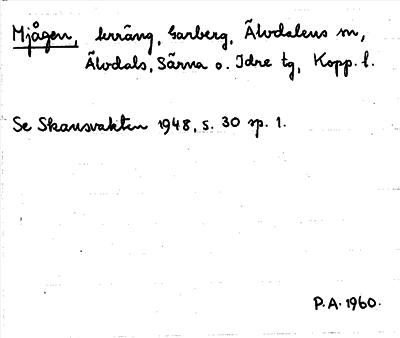 Mjågen, terräng, Garberg, Älvdalens sn,
Älvdals, Särna o. Idre tg, Kopp. l.
Se Skansvakten 1948, s. 30 sp. 1.
P.A. 1960.